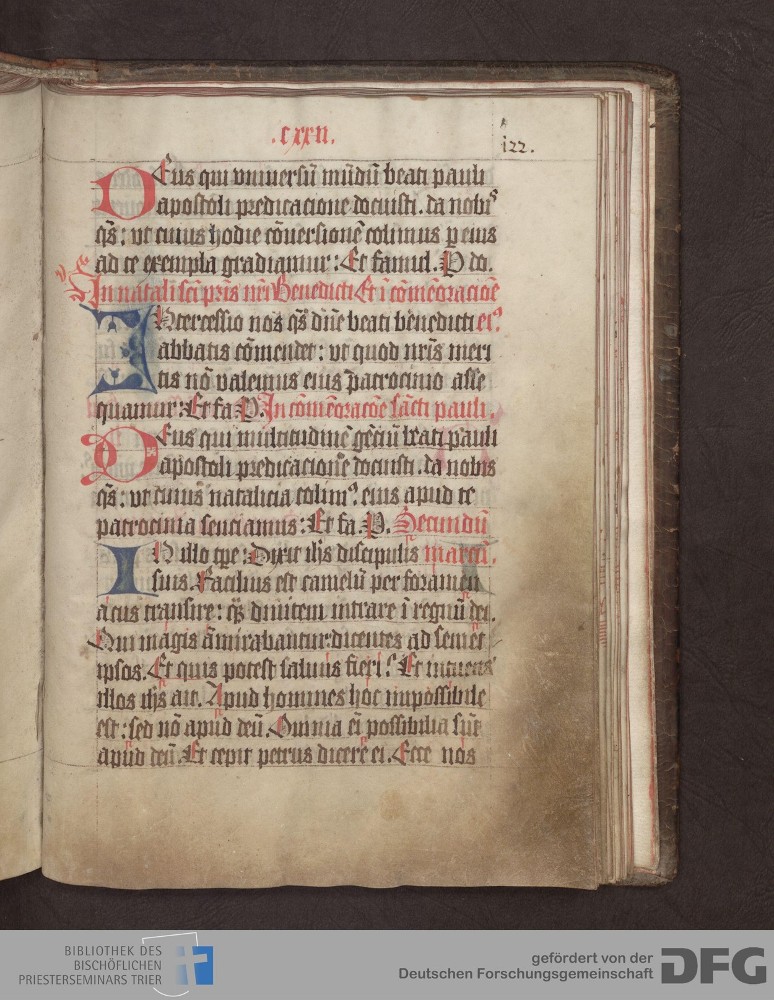 .cxxii.
122.
DEus qui vniuersū mūdū beati pauli
apostoli predicacione docuisti. da nobis
qs̄: vt cuius hodie cōuersionē colimus p eius
ad te exempla gradiamur: Et famul. P do.
In natali sci pris nri Benedicti Et ī cōmēoracioē
INtercessio nos qs̄ dn̄e beati benedicti ei9
abbatis cōmendet: vt quod nr̄is meri
tis nō valemus eius patrocinio asse
quamur: Et fa P. In cōmēoracōe sācti pauli.
DEus qui multitudinē gēciū beati pauli
apostoli predicacione docuisti. da nobis
qs̄: vt cuius natalicia colim9. eius apud te
patrocinia senciamus: Et fa. P. Secundū
IN illo tp̄e: Dixit ih̄s discipulis marcū.
suis. Facilius est camelū per foramen
acus transire: qȝ diuitem intrare ī regnū dei.
Qui magis āmirabantur dicentes ad semet
ipsos. Et quis potest saluus fieri? Et intuens
illos ih̄s ait. Apud homines hoc impossibile
est: sed nō apud deū. Omnia ei possibilia sūt
apud deū. Et cepit petrus dicere ei. Ecce nos
BIBLIOTHEK DES
BISCHÖFLICHEN
PRIESTERSEMINARS TRIER
gefördert von der
Deutschen Forschungsgemeinschaft
DFG